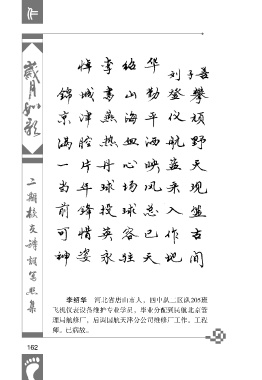 作
岁月如歌
二期校友诗词写照集
悼李绍华
刘子喜
锦城高山勤登攀
京津燕海平仪顽
满腔热血洒航野
一片丹心映蓝天
当年球场风采现
前锋投球总入盘
可惜英容已作古
神姿永驻天地间
李绍华 河北省唐山市人，四中队二区队205班
飞机仪表设备维护专业学员，毕业分配到民航北京管
理局航修厂，后调国航天津分公司维修厂工作，工程
师。已病故。
162